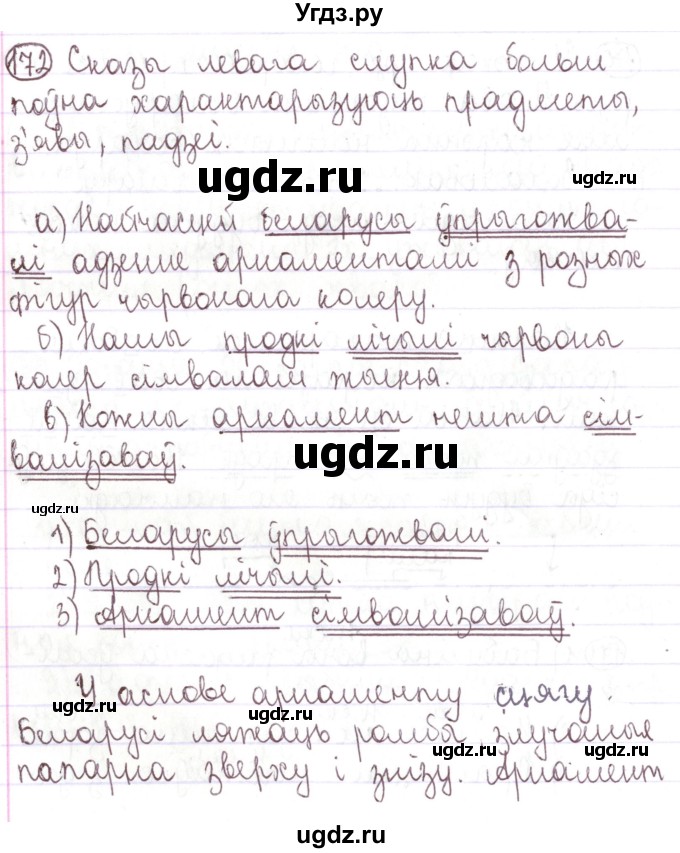 Угдз.ру
172 Сказы левага слупка больш
поўна характарызуюць прадметы,
з'явы, падзеі.
ugdz.ru
ugdz.ru
а) Найчасцей беларусы ўпрыгожва-
лі адзенне арнаментамі з розных
фігур чырвонага колеру.
б) Нашы продкі лічылі чырвоны
колер сімвалам жыцця.
в) Кожны арнамент нешта сім-
валізаваў.
ugdz.ru
ugdz.ru
ugdz.ru
1) Беларусы ўпрыгожвалі.
2) Продкі лічылі.
3) Арнамент сімвалізаваў.
У аснове арнаменту сцягу
ugdz.ru
ugdz.ru
Беларусі ляжаць ромбы, злучаныя
папарна зверху і знізу. Арнамент
ugdz.ru